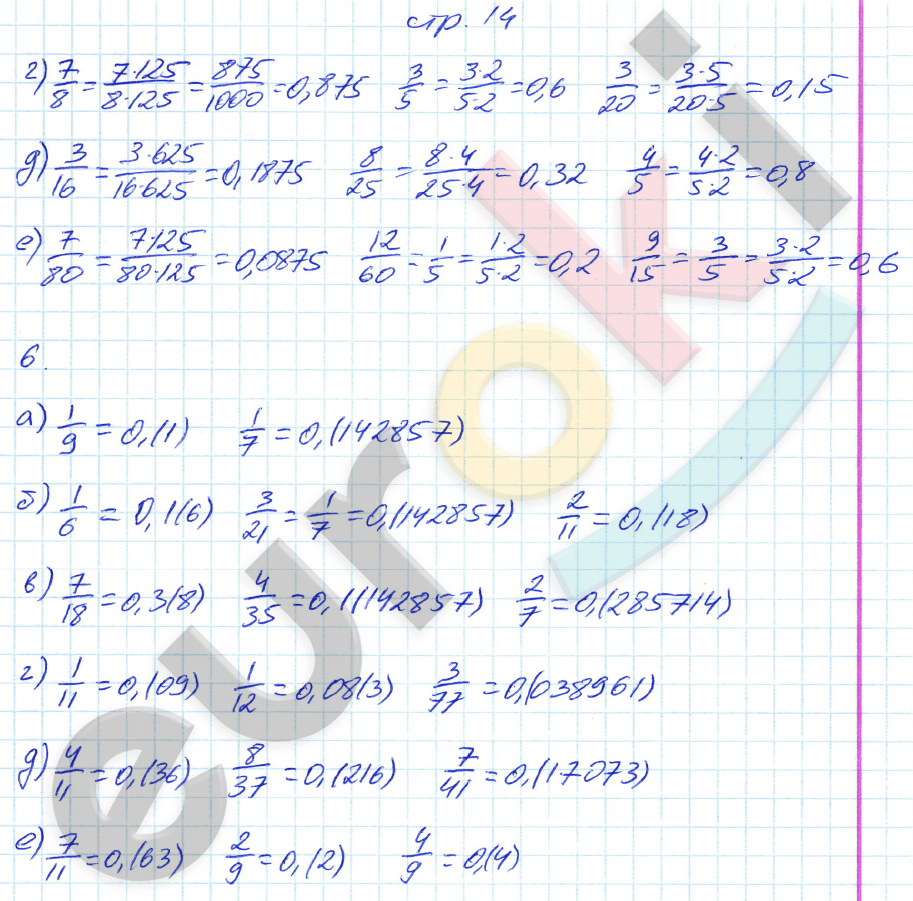 стр. 14
г) 7/8 = 7·125/8·125 = 875/1000 = 0,875 3/5 = 3·2/5·2 = 0,6 3/20 = 3·5/20·5 = 0,15
д) 3/16 = 3·625/16·625 = 0,1875 8/25 = 8·4/25·4 = 0,32 4/5 = 4·2/5·2 = 0,8
е) 7/80 = 7·125/80·125 = 0,0875 12/60 = 1/5 = 1·2/5·2 = 0,2 9/15 = 3/5 = 3·2/5·2 = 0,6
6.
а) 1/9 = 0,(1) 1/7 = 0,(142857)
б) 1/6 = 0,1(6) 3/21 = 1/7 = 0,(142857) 2/11 = 0,(18)
в) 7/18 = 0,3(8) 4/35 = 0,1(142857) 2/7 = 0,(285714)
г) 1/11 = 0,(09) 1/12 = 0,08(3) 3/77 = 0,(038961)
д) 4/11 = 0,(36) 8/37 = 0,(216) 7/41 = 0,(17073)
е) 7/11 = 0,(63) 2/9 = 0,(2) 4/9 = 0,(4)
euroki